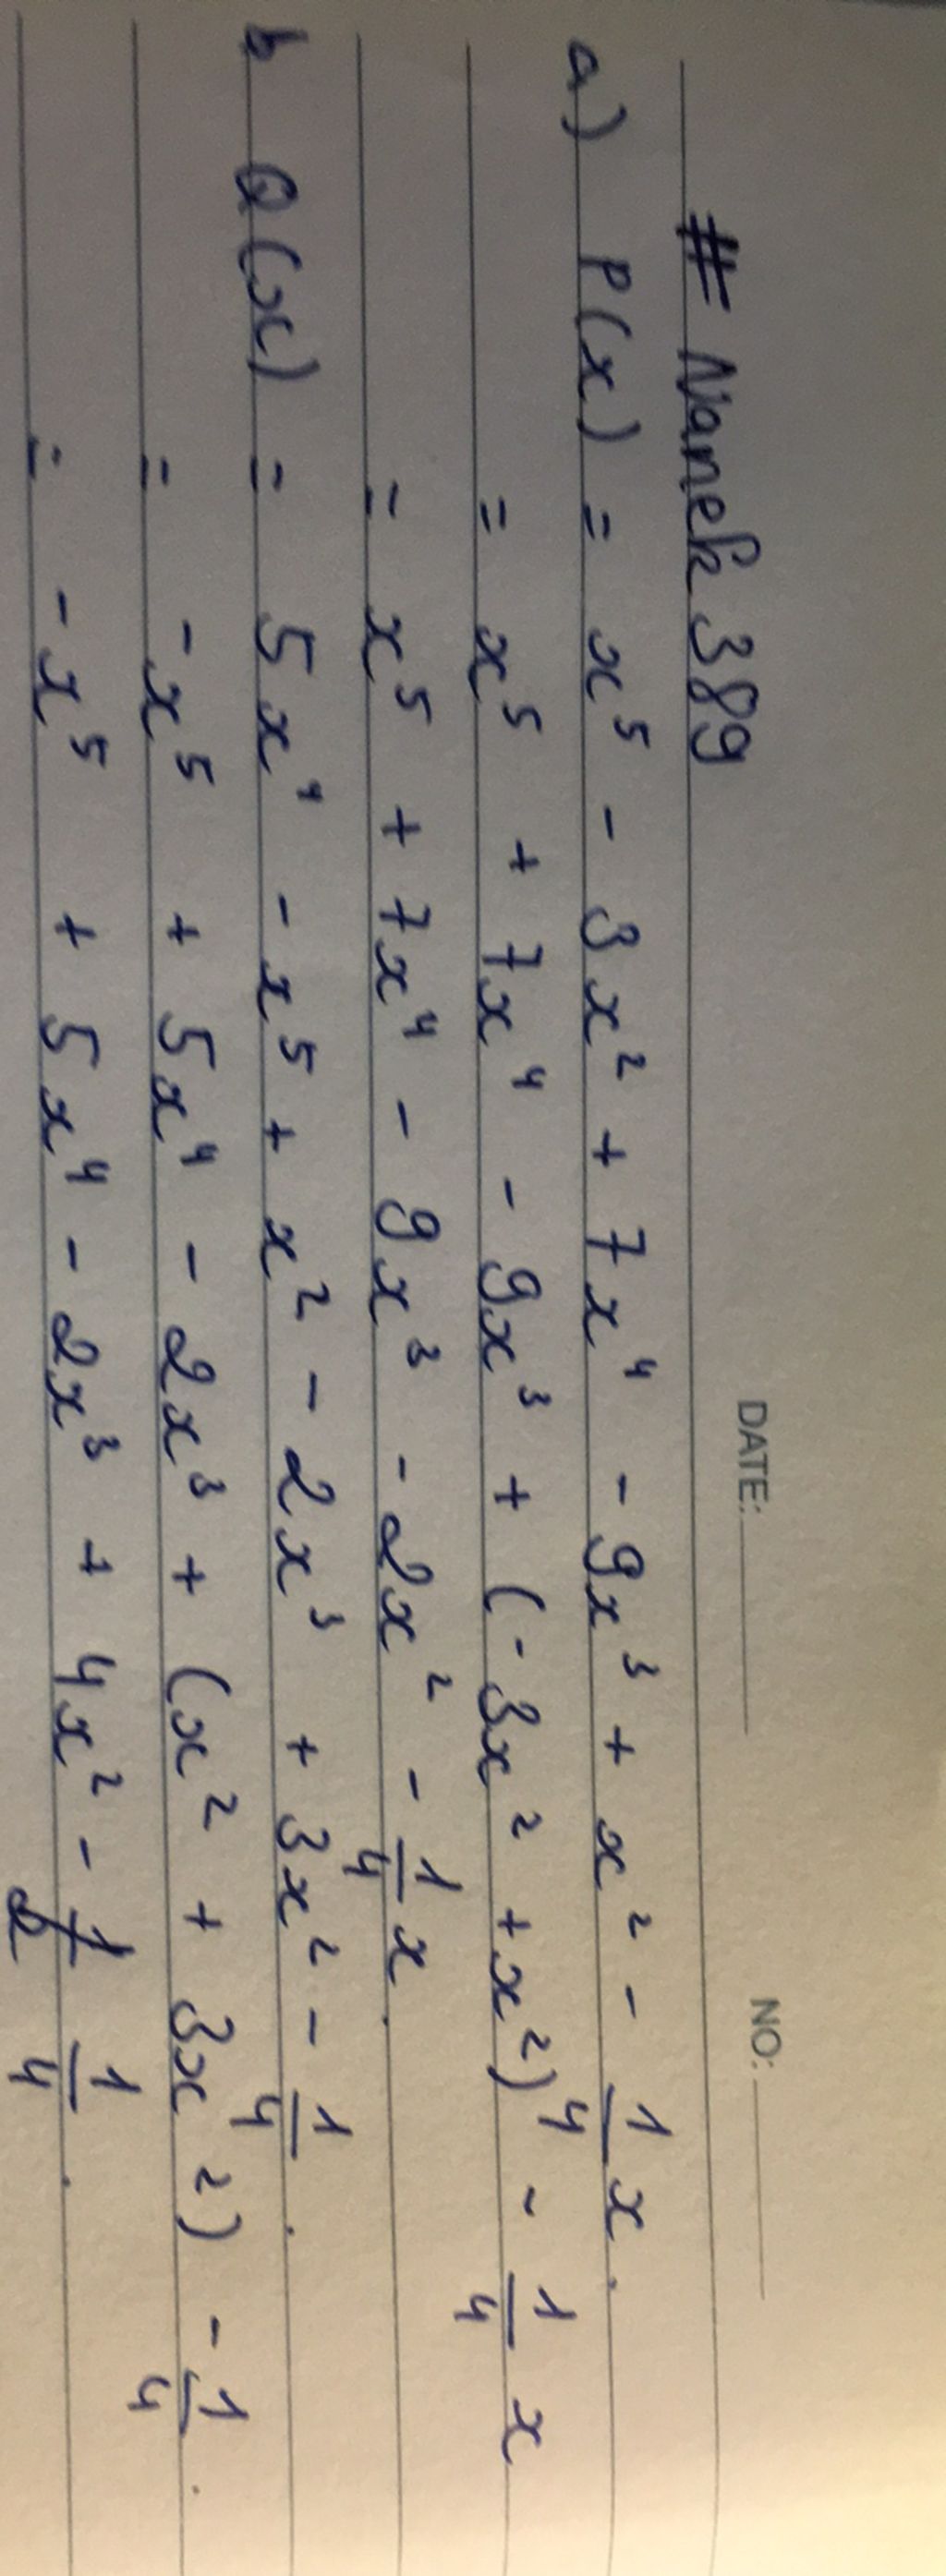 DATE: NO:
# Nanek 389
a) P(x) = x⁵ - 3x² + 7x⁴ - 9x³ + x² - 1/4 x.
= x⁵ + 7x⁴ - 9x³ + (-3x² + x²) - 1/4 x
= x⁵ + 7x⁴ - 9x³ - 2x² - 1/4 x.
b Q(x) = 5x⁴ - x⁵ + x² - 2x³ + 3x² - 1/4.
= -x⁵ + 5x⁴ - 2x³ + (x² + 3x²) - 1/4.
= -x⁵ + 5x⁴ - 2x³ + 4x² - 1/4.